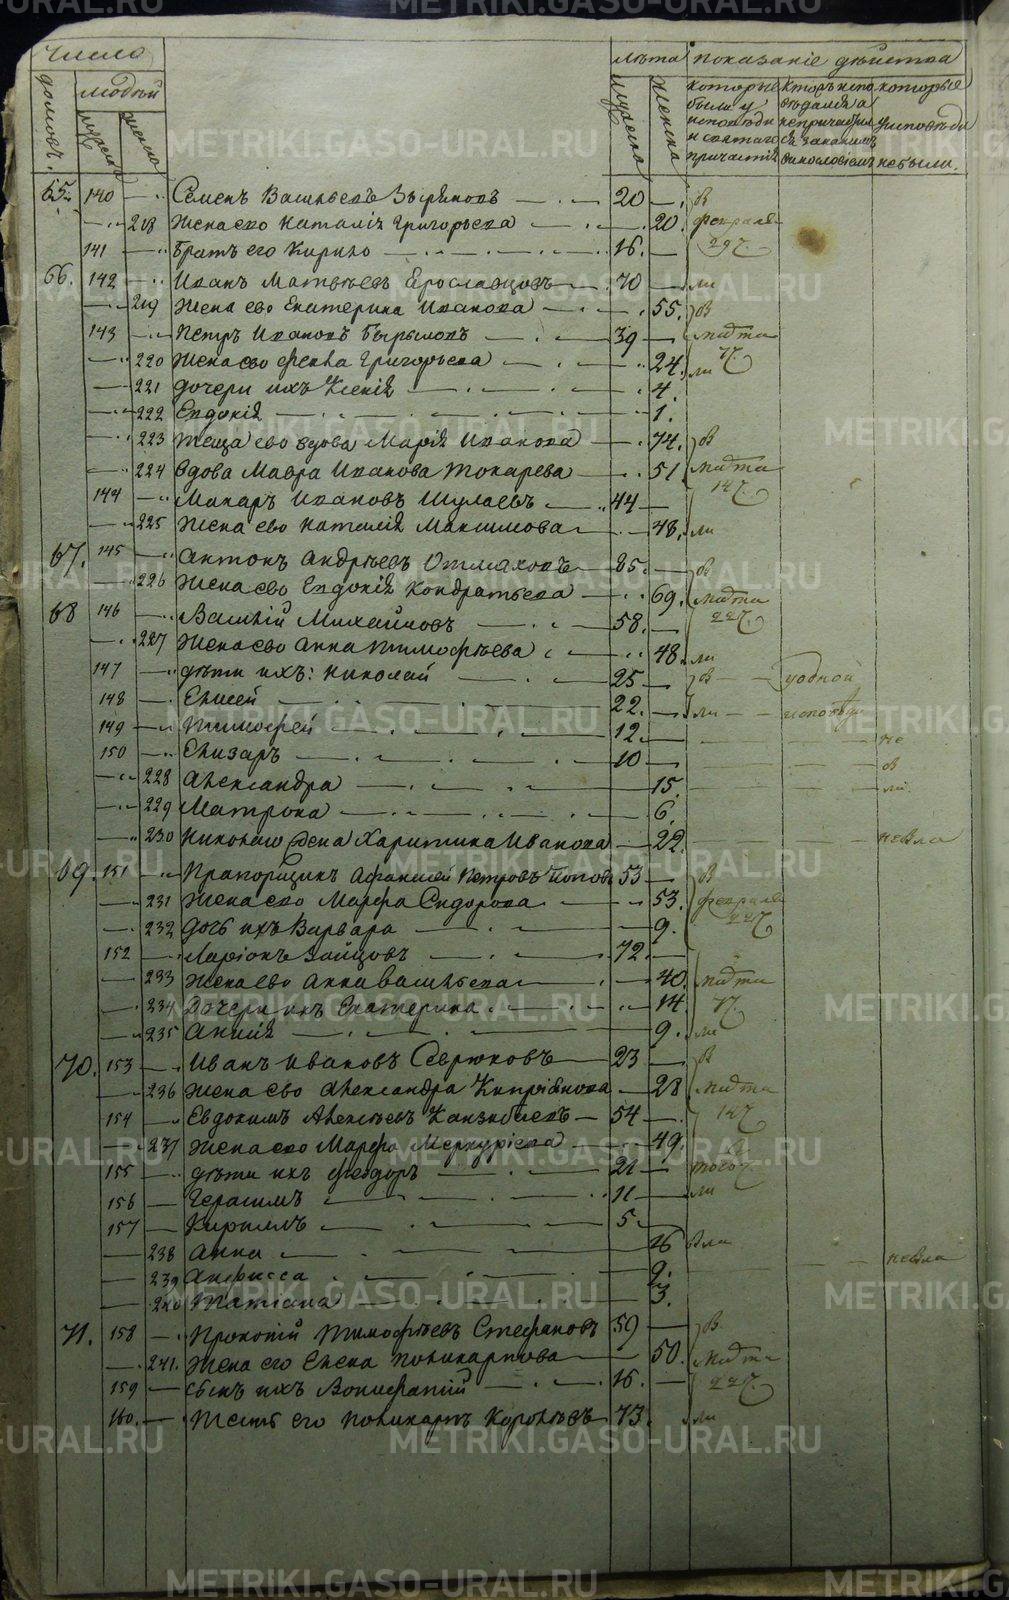 Число лѣта показаніе дѣйства
домовъ. людѣй мужеска женска которые были у исповѣди и святаго причастія которые
мужеска женска у исповѣди не были.
65. 140 Семенъ Васильевъ Зыряновъ 20 в
218 Жена ево Наталія Григорьева 20. февраля
141 Братъ его Кирило 16. 29 ч.
66. 142 Иванъ Матвѣевъ Ерославцовъ 70 ли
219 Жена ево Екатерина Иванова 55. в
143 Петръ Ивановъ 39 марта
220 Жена ево Фекла Григорьева 24. 7 ч. ли
221 дочери ихъ Ксенія 4.
222 Евдокія 1.
223 Теща ево вдова Марія Иванова 74. в
224 Вдова Мавра Иванова Токарева 51 марта
144 Макаръ Ивановъ Шулаевъ 44 14 ч.
225 Жена ево Наталія Максимова 48. ли
67. 145 Антонъ Андрѣевъ Отмаховъ 85. в
226 Жена ево Евдокія Кондратьева 69. марта
68 146 Василій Михайловъ 58. 22 ч.
227 Жена ево Анна Тимофѣева 48. ли
147 дѣти ихъ: Николай 25 в у одной
148 Елисей 22. ли исповѣди
149 Тимофей 12. не
150 Елизаръ 10 в
228 Александра 15. ли
229 Матрона 6.
230 Николаю жена Харитина Иванова 22 не вла
69. 151 Прапорщикъ Афанасей Петровъ Попов 53 в
231 Жена ево Марфа Сидорова 53. февраля
232 Дочь ихъ Варвара 9. 22 ч.
152 Ларіонъ Зайцовъ 72.
233 Жена ево Анна Васильева 40. марта
234 Дочери ихъ Екатерина 14. 7 ч.
235 Анисія 9. ли
70. 153 Иванъ Ивановъ Севрюковъ 23 в
236 Жена ево Александра Кипріянова 28 марта
154 Евдокимъ Алексѣевъ 54 14 ч.
237 Жена ево Марфа Меркуріева 49. в
155 дѣти ихъ Феодоръ 21 того ч.
156 Герасимъ 11 ли
157 Кирилъ 5.
238 Анна 16 вла не вла
239 Анфисса 9.
240 Татіана 3.
71. 158 Прокопій Тимофѣевъ Стефановъ 59 в
241. Жена его Елена Поликарпова 50. марта
159 Сынъ ихъ Вонифатій 16. 22 ч.
160. Тесть его Поликарпъ Королевъ 73. ли
METRIKI.GASO-URAL.RU